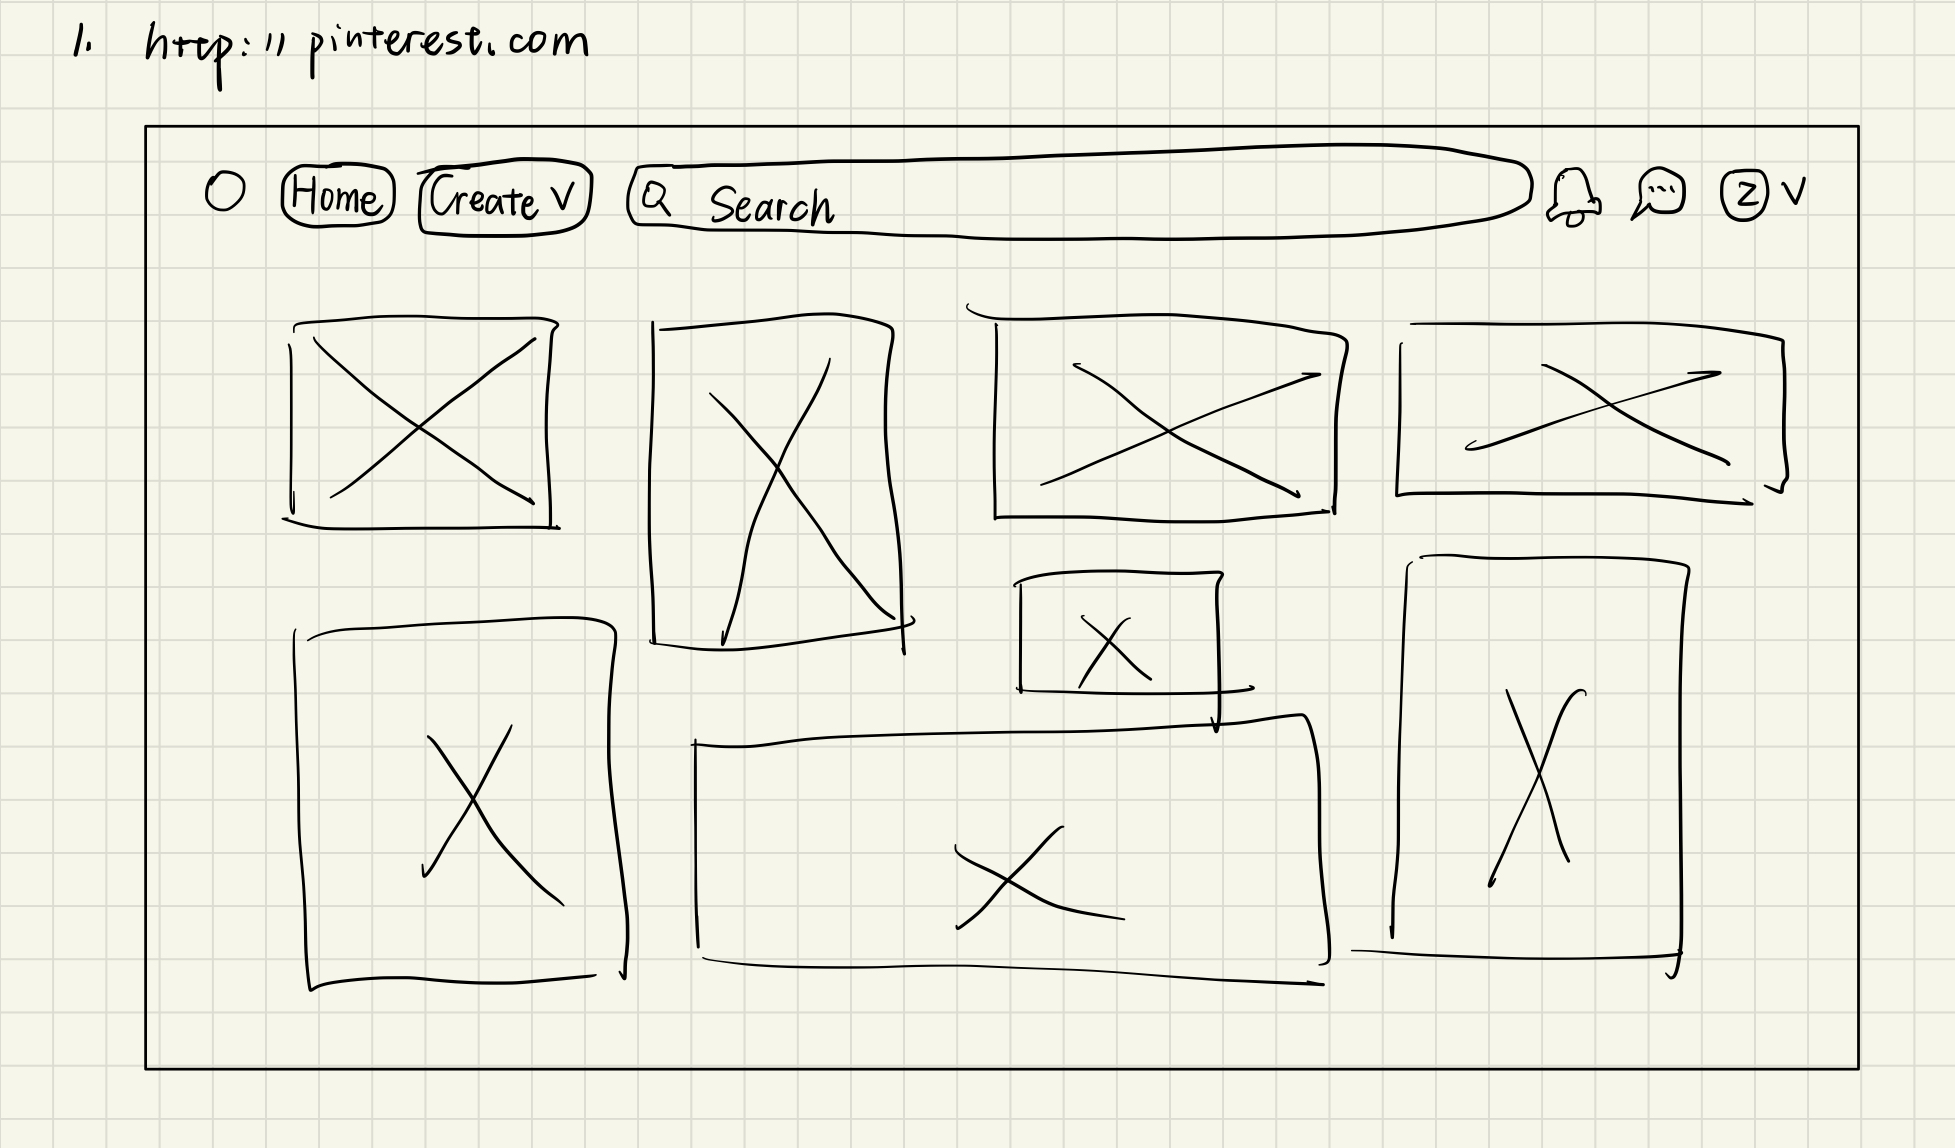 1. http://pinterest.com
Home Create V Search Z V